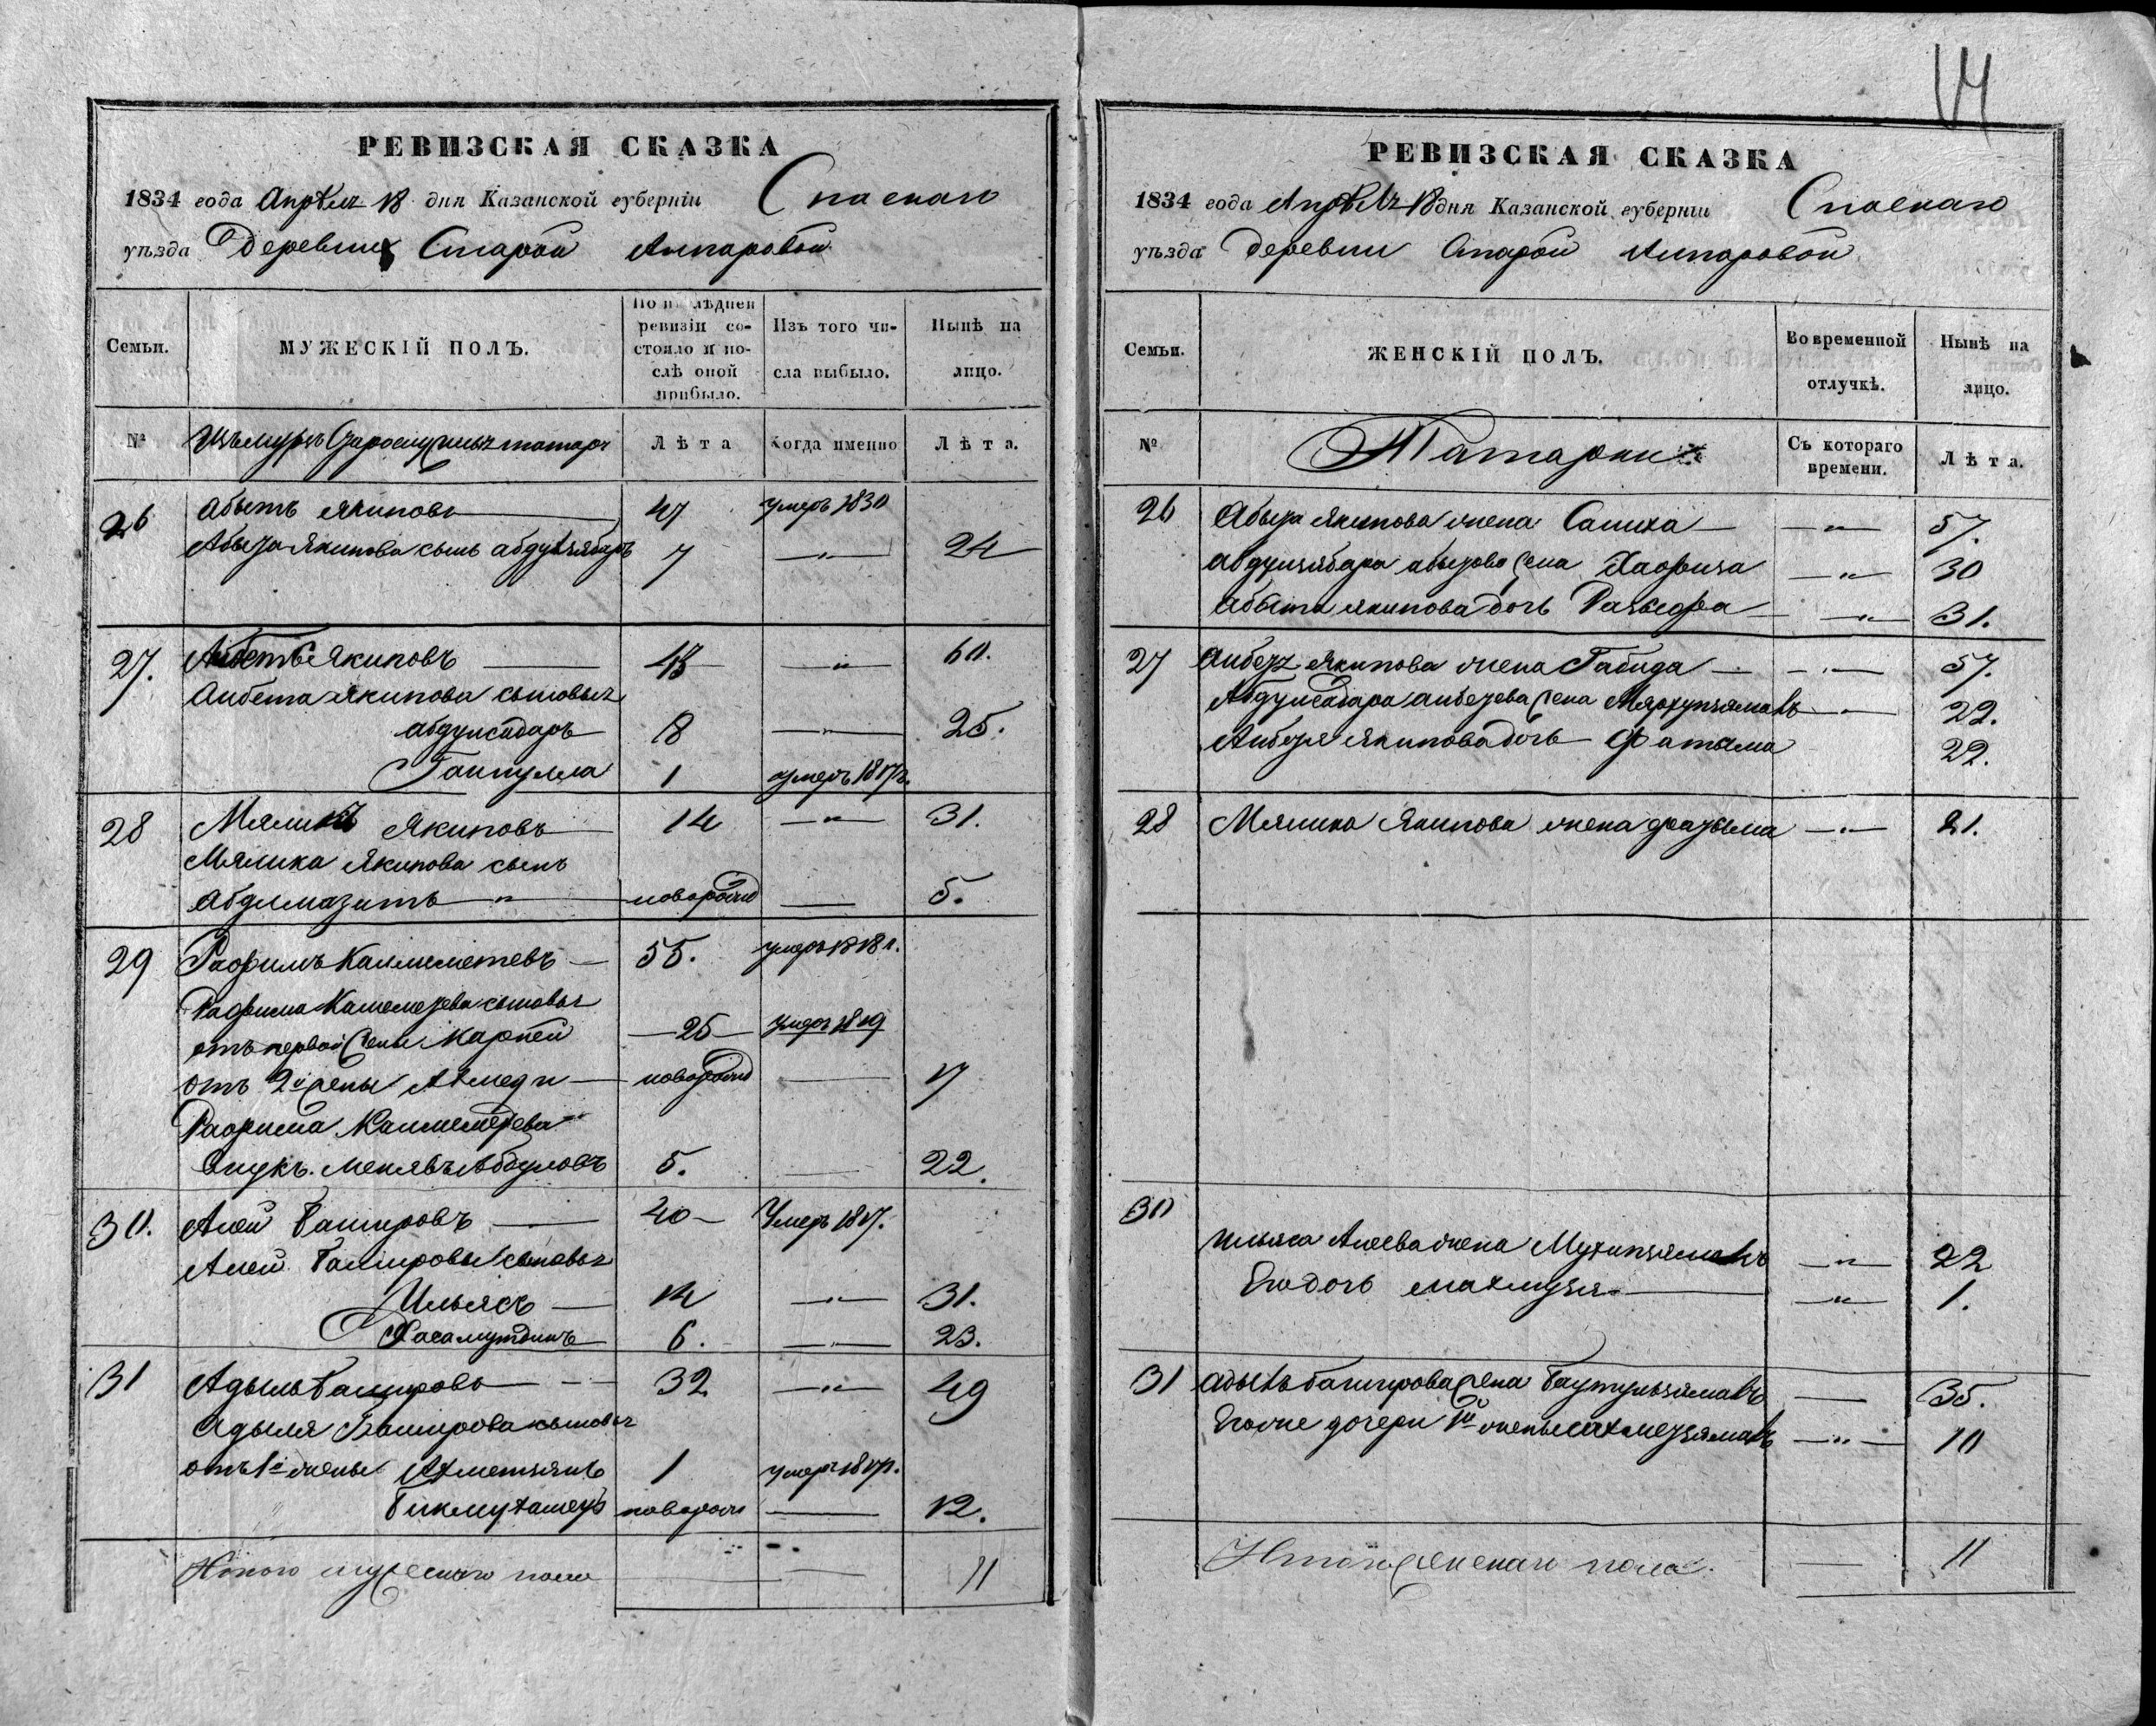 14
РЕВИЗСКАЯ СКАЗКА
1834 года Апрѣля 18 дня Казанской губерніи Спаскаго
уѣзда Деревни Старой Аппаровой
Семьи.
МУЖЕСКІЙ ПОЛЪ.
По послѣдней ревизіи состояло и послѣ оной прибыло.
Изъ того числа выбыло.
Нынѣ на лицо.
№
татаръ
Лѣта
Когда именно
Лѣта.
26 Абызъ Якиповъ 47 умеръ 1830
Абыза Якипова сынъ абдулзябаръ 7 — " — 24
27. Якиповъ 43 — " — 60.
Аибета Якипова сыновья
абдулсабаръ 8 — " — 25.
1 умеръ
28 Мяликъ Якиповъ 14 — " — 31.
Мялика Якипова сынъ
Абдлмазитъ — " — новорожд — 5.
29 Рафилъ 55. умеръ 1818 г.
Рафила сыновья
отъ первой жены 25 умеръ 1819
отъ 2й жены Ахмеди новорожд — 17
Рафила
внукъ. Абдуловъ 5. — 22.
30. Алей Башировъ 40 — Умеръ 1817.
Алей Баширова сыновья
Ильясъ — 14 — " — 31.
Хасамутдинъ 6. — 23.
31 Адыль Башировъ 32 — " — 49
Адыля Баширова сыновья
отъ 1й жены Ахметзянъ 1 умеръ
новорожд — 12.
Итого мужескаго пола — 11
РЕВИЗСКАЯ СКАЗКА
1834 года Апрѣля 18 дня Казанской губерніи Спаскаго
уѣзда Деревни Старой Аппаровой
Семьи.
ЖЕНСКІЙ ПОЛЪ.
Во временной отлучкѣ.
Нынѣ на лицо.
№
Татарки
Съ котораго времени.
Лѣта.
26 Абыза Якипова жена Салиха — " — 57.
Абдулзябара абызова жена Хафиза — " — 30
Абыза Якипова дочь — " — 31.
27 Якипова жена Габида — " — 57.
Абдулсабара аибезева жена — " — 22.
Якипова дочь Фатыма 22.
28 Мялика Якипова жена фазыма — " — 21.
30
Ильяса Алеева жена — " — 22
Его дочь — " — 1.
31 Адыль Баширова жена — 35.
Его же дочери 1й жены — " — 10
Итого женскаго пола. — 11